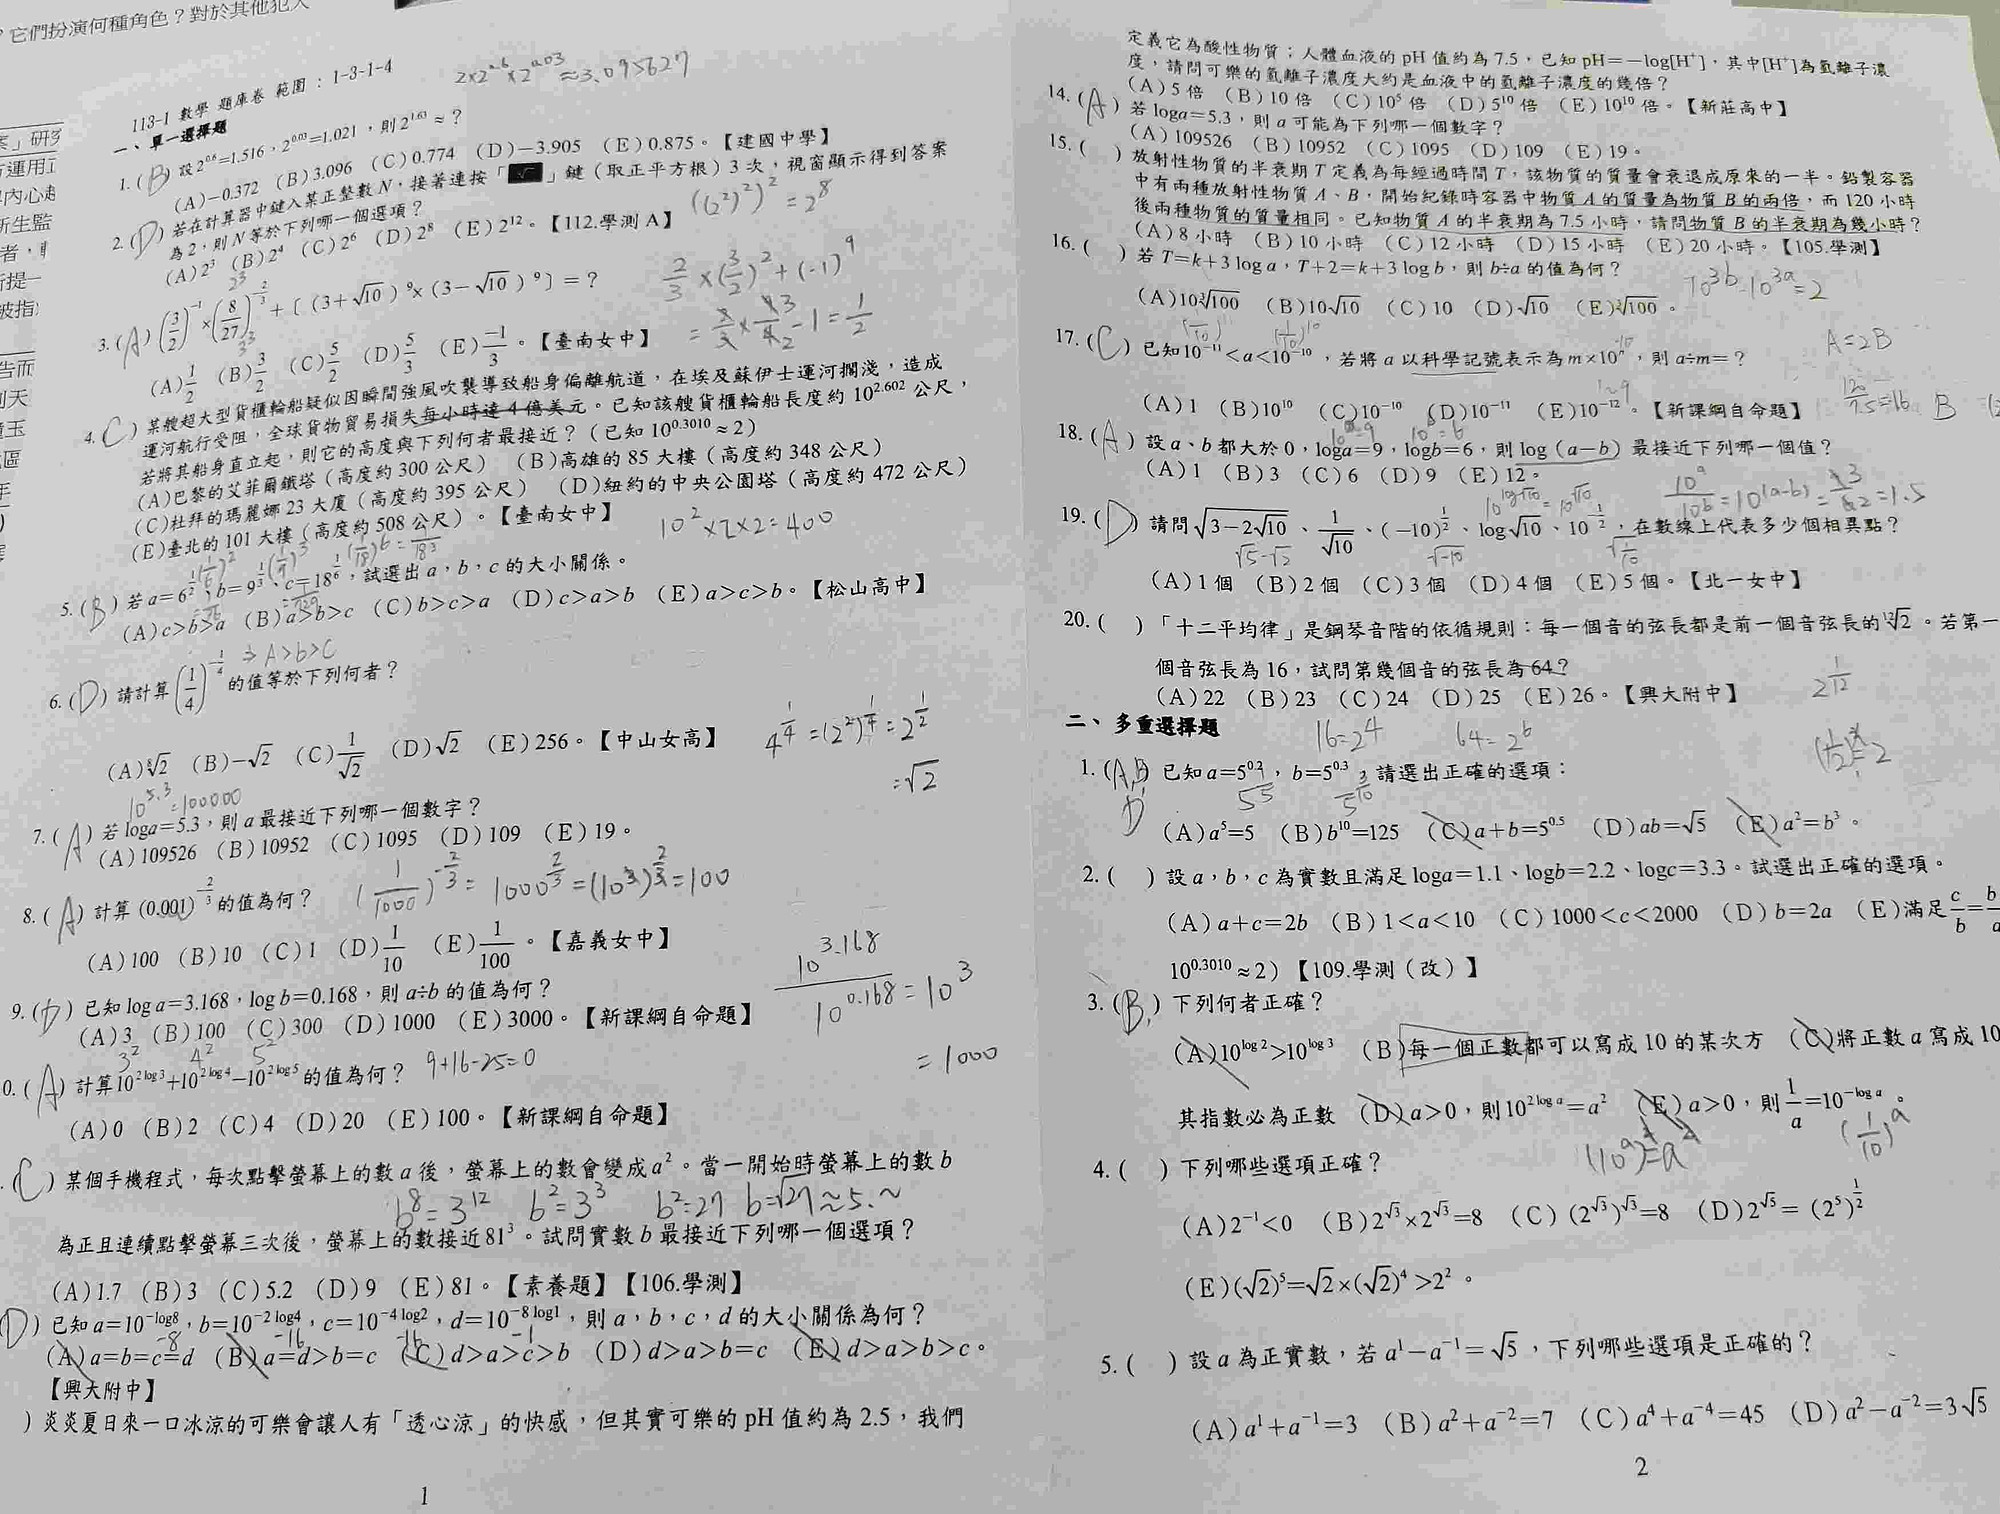 ？它們扮演何種角色？對於其他犯人
113-1 數學 題庫卷 範圍：1-3-1-4
2×2^0.6×2^0.03≈3.095627
一、單一選擇題
1.(B) 設 2^0.6=1.516，2^0.03=1.021，則 2^1.63≈？
(A)−0.372 (B)3.096 (C)0.774 (D)−3.905 (E)0.875。【建國中學】
2.(D) 若在計算器中鍵入某正整數 N，接著連按「√」鍵（取正平方根）3 次，視窗顯示得到答案
為 2，則 N 等於下列哪一個選項？
((2²)²)²=2⁸
(A)2³ (B)2⁴ (C)2⁶ (D)2⁸ (E)2¹²。【112.學測 A】
3.(A) (3/2)⁻¹×(8/27)^(−2/3)+[(3+√10)⁹×(3−√10)⁹]=？
2/3×(3/2)²+(-1)⁹
(A)1/2 (B)3/2 (C)5/2 (D)5/3 (E)−1/3。【臺南女中】
4.(C) 某艘超大型貨櫃輪船疑似因瞬間強風吹襲導致船身偏離航道，在埃及蘇伊士運河擱淺，造成
運河航行受阻，全球貨物貿易損失每小時達 4 億美元。已知該艘貨櫃輪船長度約 10^2.602 公尺，
若將其船身直立起，則它的高度與下列何者最接近？（已知 10^0.3010≈2）
(A)巴黎的艾菲爾鐵塔（高度約 300 公尺） (B)高雄的 85 大樓（高度約 348 公尺）
(C)杜拜的瑪麗娜 23 大廈（高度約 395 公尺） (D)紐約的中央公園塔（高度約 472 公尺）
(E)臺北的 101 大樓（高度約 508 公尺）。【臺南女中】
10²×2×2=400
5.(B) 若 a=6^(1/2)、b=9^(1/3)、c=18^(1/6)，試選出 a，b，c 的大小關係。
(A)c>b>a (B)a>b>c (C)b>c>a (D)c>a>b (E)a>c>b。【松山高中】
⇒A>b>C
6.(D) 請計算 (1/4)^(−1/4) 的值等於下列何者？
4^(1/4)=(2²)^(1/4)=2^(1/2)
=√2
(A)⁸√2 (B)−√2 (C)1/√2 (D)√2 (E)256。【中山女高】
10^5.3=100000
7.(A) 若 loga=5.3，則 a 最接近下列哪一個數字？
(A)109526 (B)10952 (C)1095 (D)109 (E)19。
8.(A) 計算 (0.001)^(−2/3) 的值為何？
(1/1000)^(−2/3)=1000^(2/3)=(10³)^(2/3)=100
(A)100 (B)10 (C)1 (D)1/10 (E)1/100。【嘉義女中】
9.(D) 已知 log a=3.168，log b=0.168，則 a÷b 的值為何？
10^3.168/10^0.168=10³
=1000
(A)3 (B)100 (C)300 (D)1000 (E)3000。【新課綱自命題】
3² 4² 5²
0.(A) 計算 10^(2 log 3)+10^(2 log 4)−10^(2 log 5) 的值為何？
9+16-25=0
(A)0 (B)2 (C)4 (D)20 (E)100。【新課綱自命題】
.(C) 某個手機程式，每次點擊螢幕上的數 a 後，螢幕上的數會變成 a²。當一開始時螢幕上的數 b
b⁸=3¹² b²=3³ b²=27 b=√27≈5.~
為正且連續點擊螢幕三次後，螢幕上的數接近 81³。試問實數 b 最接近下列哪一個選項？
(A)1.7 (B)3 (C)5.2 (D)9 (E)81。【素養題】【106.學測】
(D) 已知 a=10^(−log8)，b=10^(−2 log4)，c=10^(−4 log2)，d=10^(−8 log1)，則 a，b，c，d 的大小關係為何？
-8 -16 -16 -1
(A)a=b=c=d (B)a=d>b=c (C)d>a>c>b (D)d>a>b=c (E)d>a>b>c。
【興大附中】
) 炎炎夏日來一口冰涼的可樂會讓人有「透心涼」的快感，但其實可樂的 pH 值約為 2.5，我們
1
定義它為酸性物質；人體血液的 pH 值約為 7.5，已知 pH=−log[H⁺]，其中[H⁺]為氫離子濃
度，請問可樂的氫離子濃度大約是血液中的氫離子濃度的幾倍？
(A)5 倍 (B)10 倍 (C)10⁵ 倍 (D)5¹⁰ 倍 (E)10¹⁰ 倍。【新莊高中】
14.(A) 若 loga=5.3，則 a 可能為下列哪一個數字？
(A)109526 (B)10952 (C)1095 (D)109 (E)19。
15.( ) 放射性物質的半衰期 T 定義為每經過時間 T，該物質的質量會衰退成原來的一半。鉛製容器
中有兩種放射性物質 A、B，開始紀錄時容器中物質 A 的質量為物質 B 的兩倍，而 120 小時
後兩種物質的質量相同。已知物質 A 的半衰期為 7.5 小時，請問物質 B 的半衰期為幾小時？
(A)8 小時 (B)10 小時 (C)12 小時 (D)15 小時 (E)20 小時。【105.學測】
16.( ) 若 T=k+3 log a，T+2=k+3 log b，則 b÷a 的值為何？
10^3b-10^3a=2
(A)10³√100 (B)10√10 (C)10 (D)√10 (E)³√100。
17.(C) 已知 10⁻¹¹<a<10⁻¹⁰，若將 a 以科學記號表示為 m×10ⁿ，則 a÷m=？
A=2B
(A)1 (B)10¹⁰ (C)10⁻¹⁰ (D)10⁻¹¹ (E)10⁻¹²。【新課綱自命題】
120/7.5=16 B
18.(A) 設 a、b 都大於 0，loga=9，logb=6，則 log（a−b）最接近下列哪一個值？
(A)1 (B)3 (C)6 (D)9 (E)12。
10⁹/10⁶=10^(a-b)
19.(D) 請問 √(3−2√10)、1/√10、(−10)^(1/2)、log√10、10^(−1/2)，在數線上代表多少個相異點？
√5-√2 √-10
(A)1 個 (B)2 個 (C)3 個 (D)4 個 (E)5 個。【北一女中】
20.( ) 「十二平均律」是鋼琴音階的依循規則：每一個音的弦長都是前一個音弦長的¹²√2。若第一
個音弦長為 16，試問第幾個音的弦長為 64？
2^(1/12)
(A)22 (B)23 (C)24 (D)25 (E)26。【興大附中】
二、多重選擇題
16=2⁴ 64=2⁶
1.(A,B,D) 已知 a=5^0.2，b=5^0.3，請選出正確的選項：
(A)a⁵=5 (B)b¹⁰=125 (C)a+b=5^0.5 (D)ab=√5 (E)a²=b³。
2.( ) 設 a，b，c 為實數且滿足 loga=1.1、logb=2.2、logc=3.3。試選出正確的選項。
(A)a+c=2b (B)1<a<10 (C)1000<c<2000 (D)b=2a (E)滿足 c/b=b/a
10^0.3010≈2）【109.學測（改）】
3.(B,) 下列何者正確？
(A)10^(log 2)>10^(log 3) (B)每一個正數都可以寫成 10 的某次方 (C)將正數 a 寫成 10
其指數必為正數 (D)a>0，則 10^(2 log a)=a² (E)a>0，則 1/a=10^(−log a)。
(1/10)^a
4.( ) 下列哪些選項正確？
(A)2⁻¹<0 (B)2^√3×2^√3=8 (C)(2^√3)^√3=8 (D)2^√5=(2⁵)^(1/2)
(E)(√2)⁵=√2×(√2)⁴>2²。
5.( ) 設 a 為正實數，若 a¹−a⁻¹=√5，下列哪些選項是正確的？
(A)a¹+a⁻¹=3 (B)a²+a⁻²=7 (C)a⁴+a⁻⁴=45 (D)a²−a⁻²=3√5
2